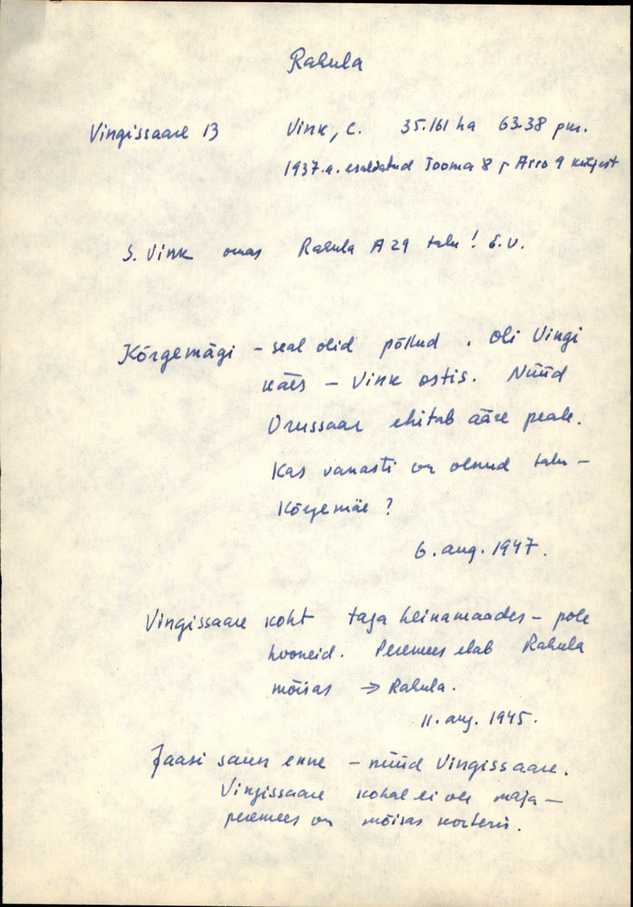 Rahula
Vingissaare 13 Vink, C. 35.161 ha 63.38 pm.
1937.a. eraldatud Tooma 8 ja Arro 9 küljest
S. Vink omas Rahula A 29 talu! E.V.
Kõrgemägi – seal olid põllud. Oli Vingi
käes – Vink ostis. Nüüd
Orussaar ehitab ääre peale.
Kas vanasti on olnud talu –
Kõrgemäe?
6. aug. 1947.
Vingissaare koht taga heinamaades – pole
hooneid. Peremees elab Rahula
mõisas → Rahula.
11. aug. 1945.
Jaasi saun enne – nüüd Vingissaare.
Vingissaare kohal ei ole maja –
peremees on mõisas korteris.